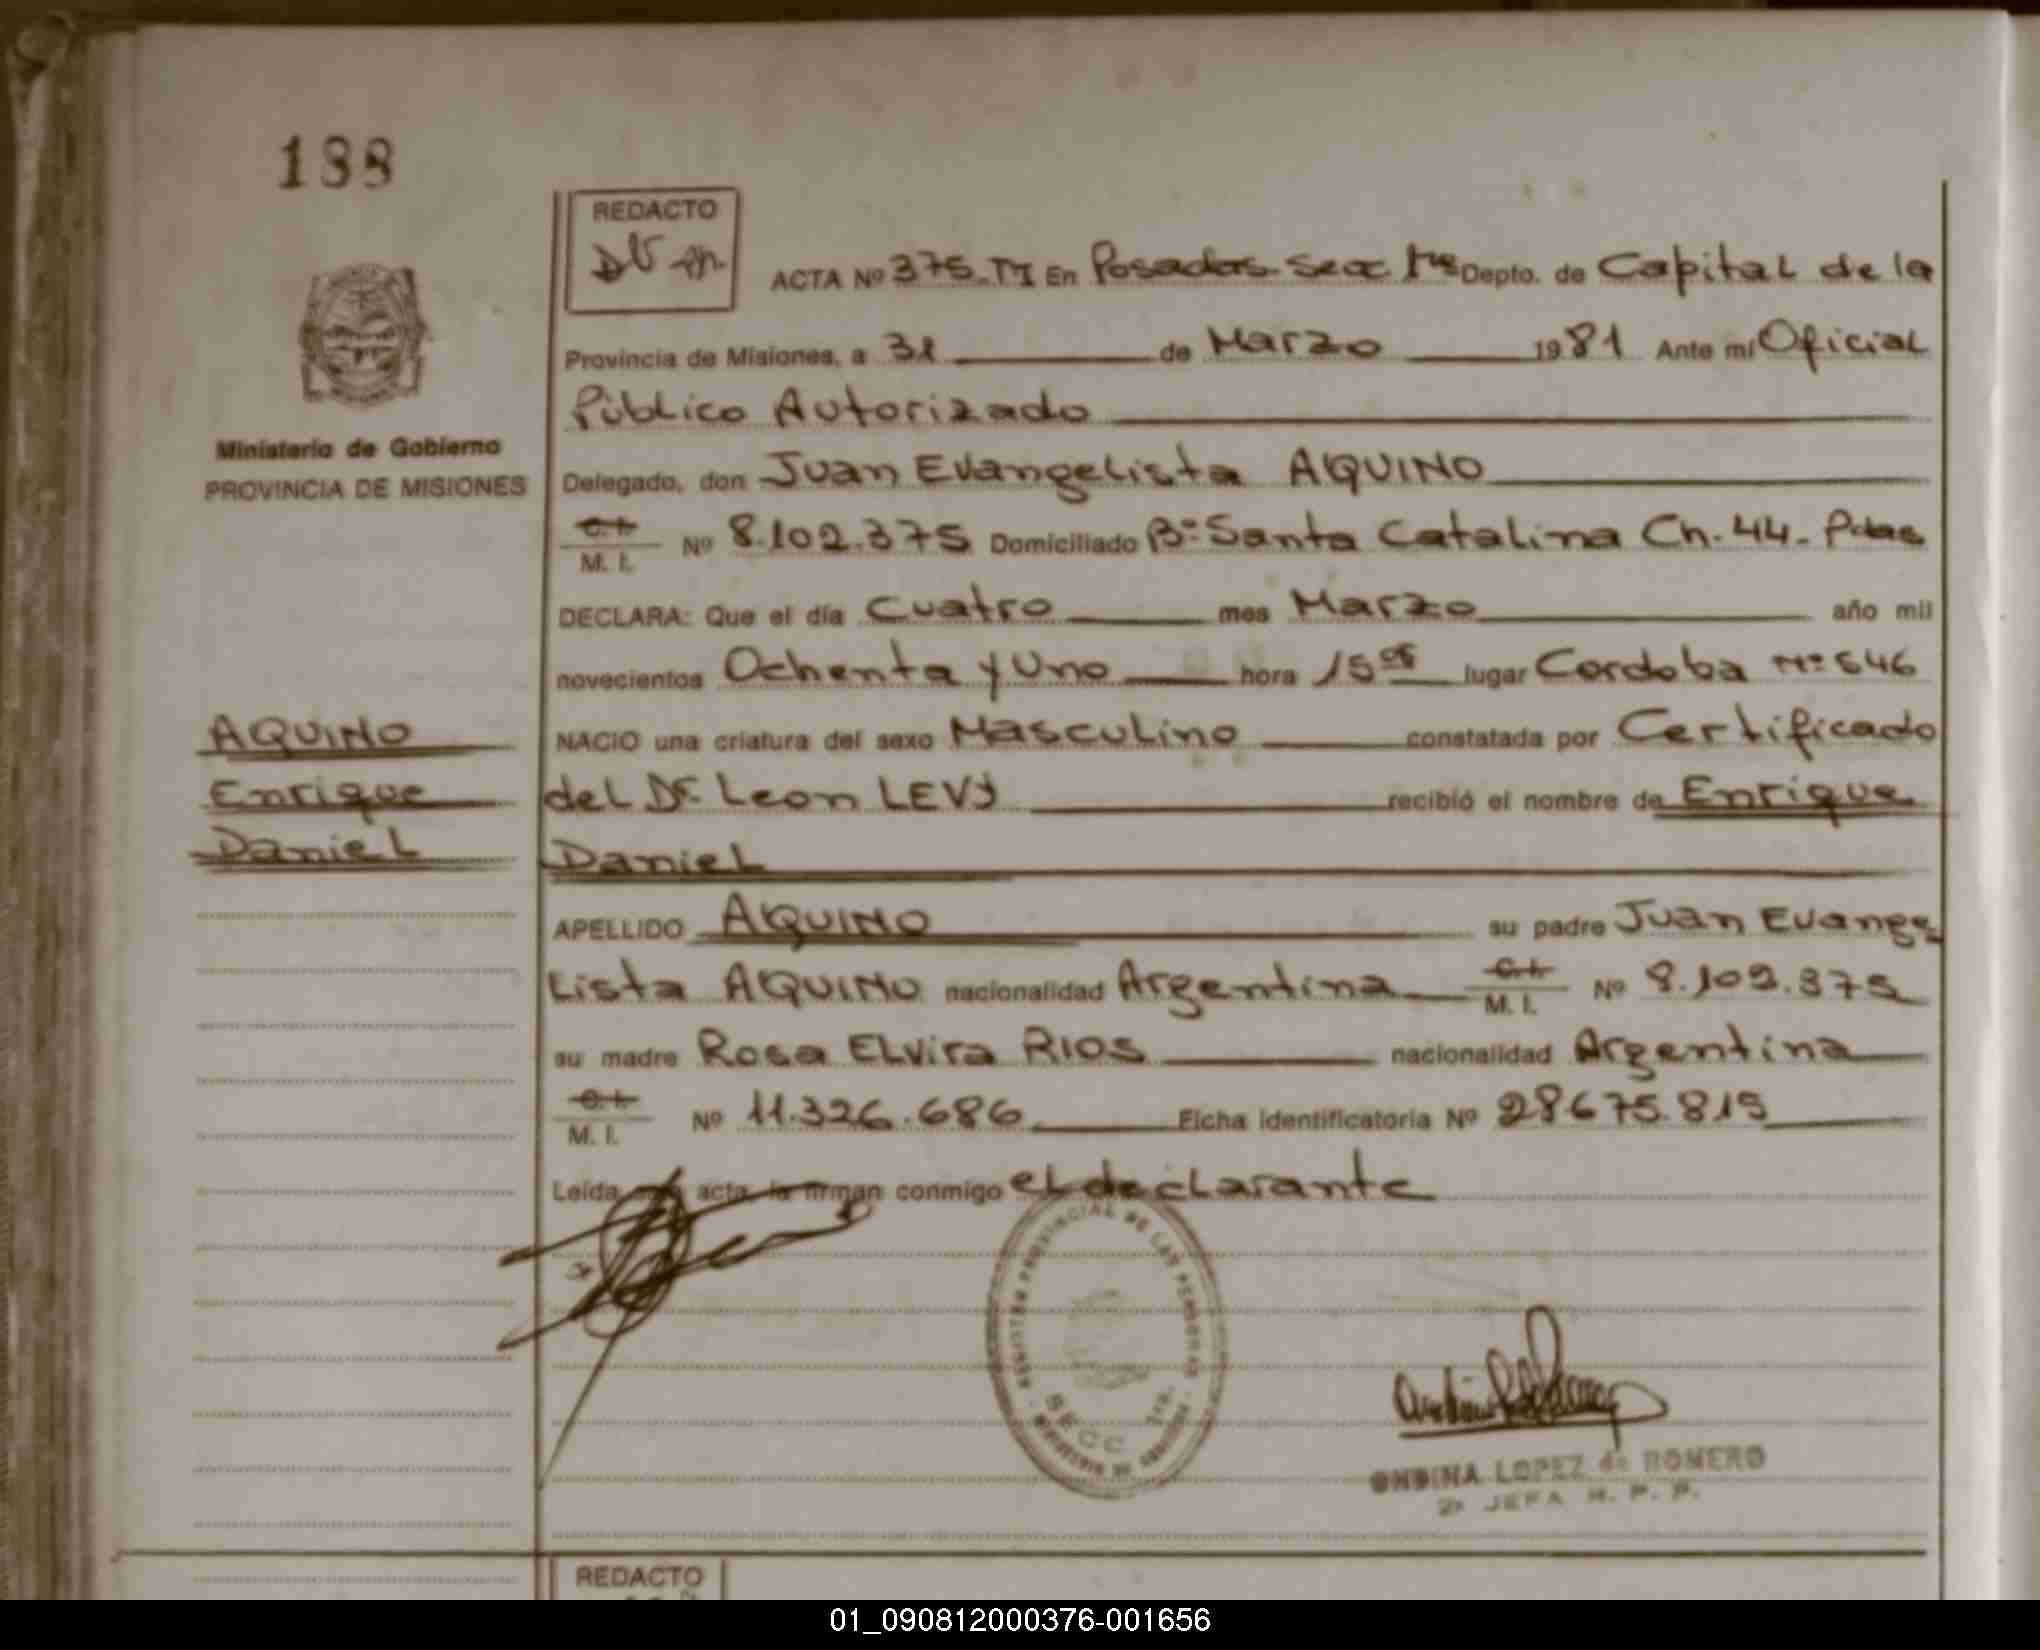 188
REDACTO
ACTA Nº 375. TI En Posadas Secc. 1ra Depto. de Capital de la
Provincia de Misiones, a 31 de Marzo 1981 Ante mí Oficial
Público Autorizado
Ministerio de Gobierno
PROVINCIA DE MISIONES
Delegado, don Juan Evangelista AQUINO
C. I.
M. I. Nº 8.102.375 Domiciliado Bº Santa Catalina Ch. 44. Pdas
DECLARA: Que el día Cuatro mes Marzo año mil
novecientos Ochenta y Uno hora 15 05 lugar Cordoba Nº 646
AQUINO
Enrique
Daniel
NACIO una criatura del sexo Masculino constatada por Certificado
del Dr. Leon LEVY recibió el nombre de Enrique
Daniel
APELLIDO AQUINO su padre Juan Evange
Lista AQUINO nacionalidad Argentina C. I.
M. I. Nº 8.102.375
su madre Rosa Elvira RIOS nacionalidad Argentina
C. I.
M. I. Nº 11.326.686 Ficha identificatoria Nº 28675.815
Leída acta la firman conmigo el declarante
REGISTRO PROVINCIAL DE LAS PERSONAS
SECC 1ra.
ONDINA LOPEZ de ROMERO
2ª JEFA R. P. P.
REDACTO
01_090812000376-001656